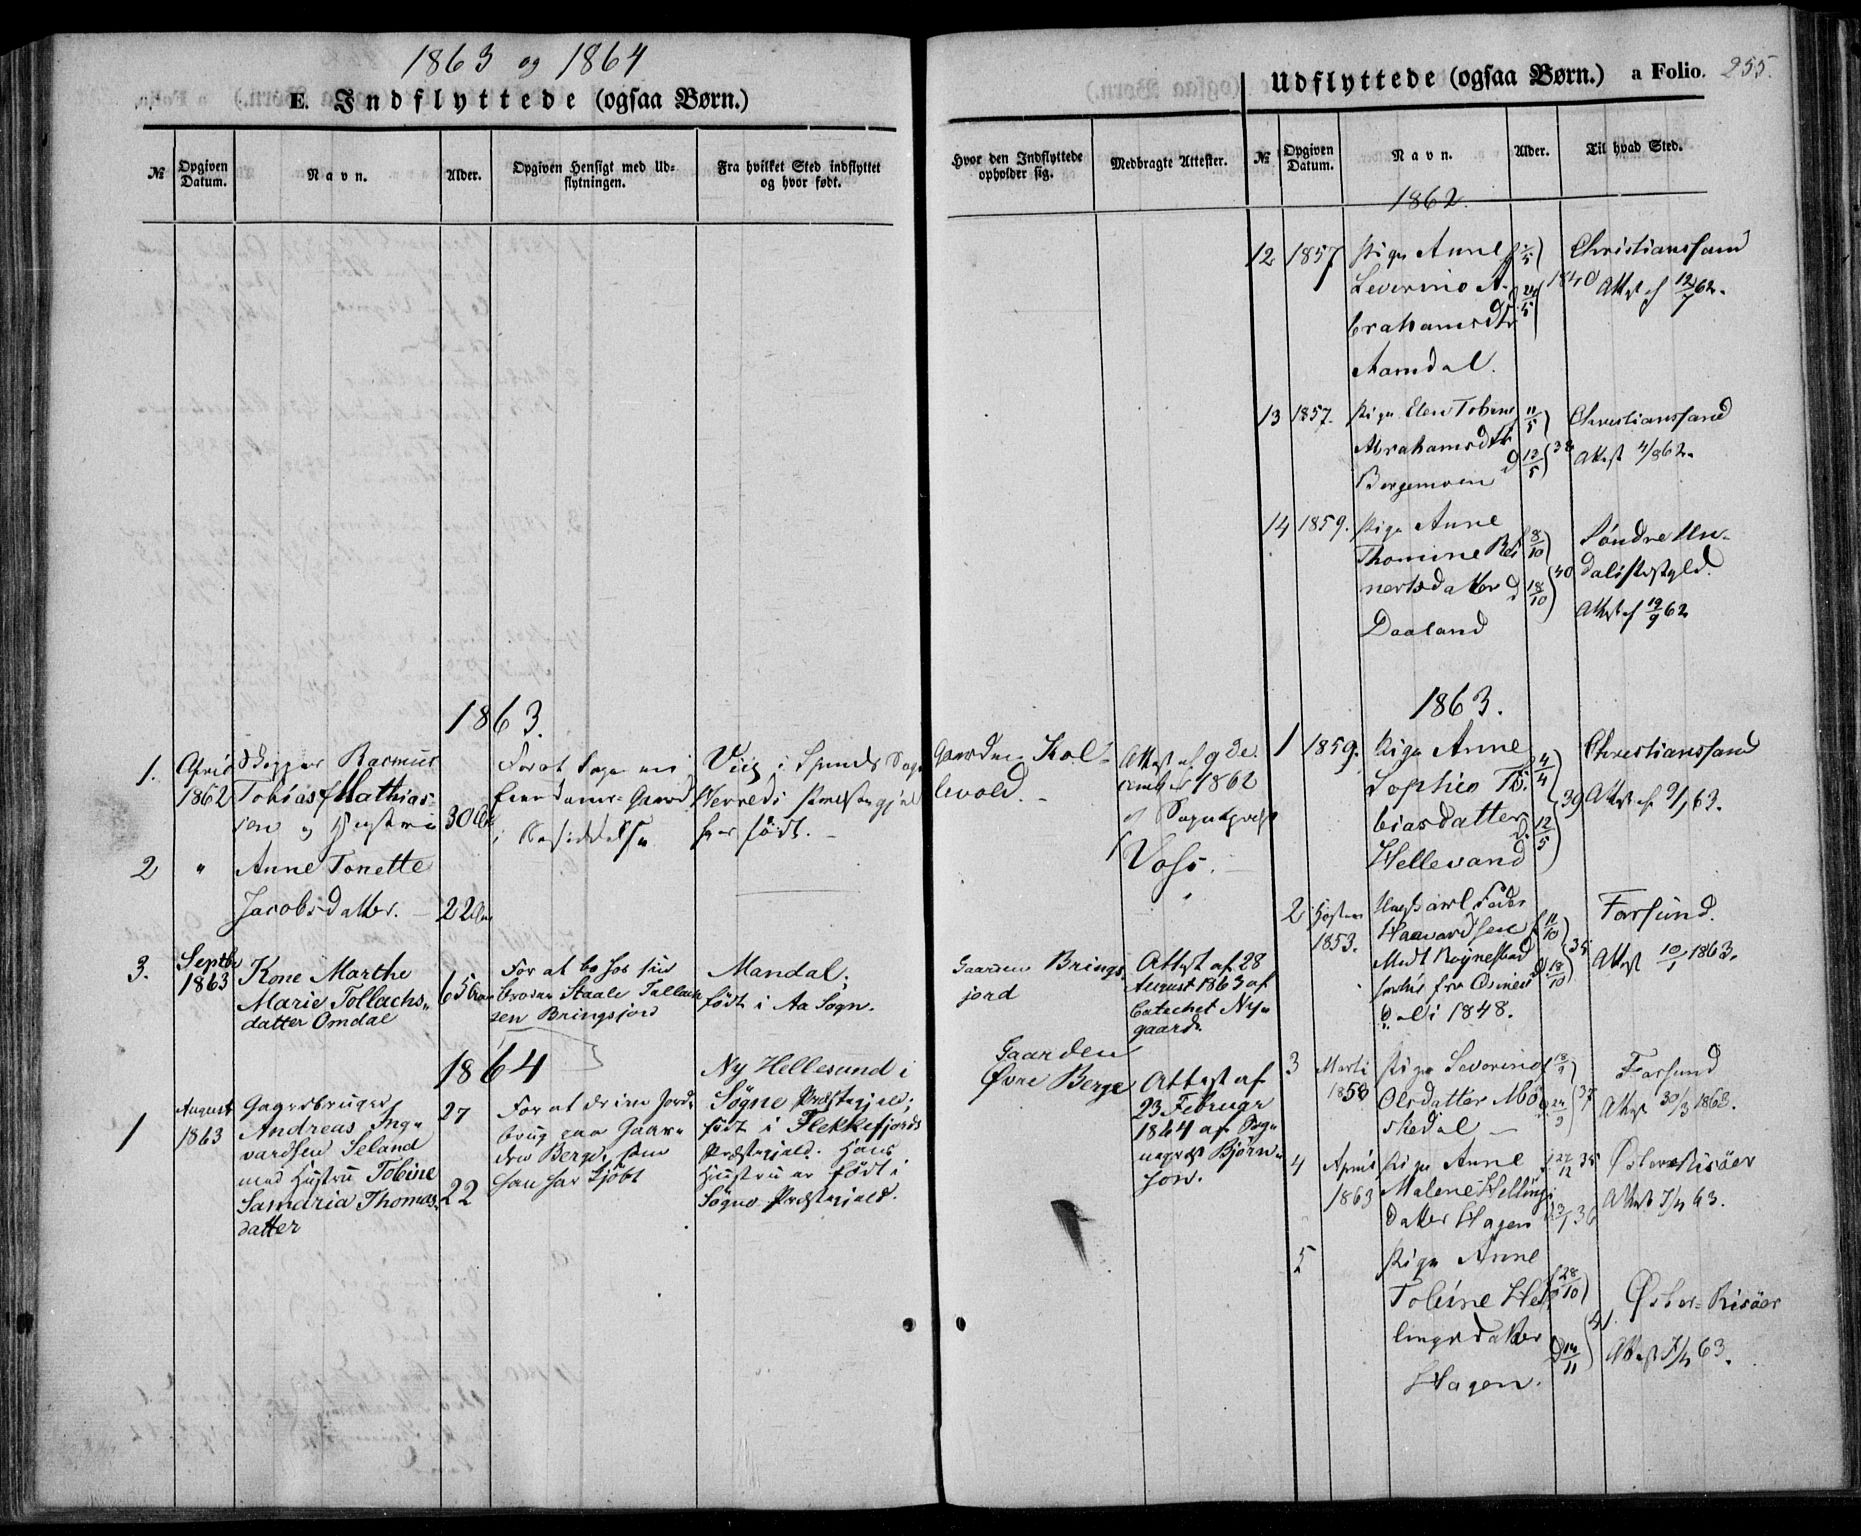 1863 og 1864
E. Indflyttede (ogsaa Børn.)
№
Opgiven Datum.
Navn.
Alder.
Opgiven Hensigt med Udflytningen.
Fra hvilket Sted indflyttet og hvor født.
Hvor den Indflyttede opholder sig.
Medbragte Attester.
1863.
1.
April
1862
Rasmus
Tobias Mathias-
sen og Hustru
30
For at tage en
Eiendoms-Gaard
i Besiddelse
Viig i Spinds Sogn
Herreds Præstegjeld
her født. -
Gaarden Kol-
levold. -
Attest af 9 De-
cember 1862
af Sognepræst
Voss. -
2
"
Anne Tonette
Jacobsdatter. -
22
3.
Septbr
1863
Kone Marthe
Marie Tollachs-
datter Omdal
65
For at bo hos sin
broder Staale Tollach
sen Bringsjord
Mandal;
født i Aa Sogn.
Gaarden Brings
jord
Attest af 28
August 1863 af
Catechet Ny-
gaard.
1864
1
August
1863
Gaardbruger
Andreas Ing-
vardsen Seland
med Hustru Tobine
Samdria Thomas-
datter
27
22
For at drive Jord-
brug paa Gaar-
den Berge, som
han har kjöbt
Ny Hellesund i
Søgne Præstegjeld;
født i Flekkefjords
Præstegjeld. Hans
Hustru er født i
Søgne Præstegjeld.
Gaarden
Øvre Berge
Attest af
23 Februar
1864 af Sog-
nepræst Bjørn-
son.
Udflyttede (ogsaa Børn.) a Folio. 255.
№
Opgiven Datum.
Navn.
Alder.
Til hvad Sted.
1862.
12
1857
Pige Anne
Severine A-
brahamsdtr
Aamdal.
1840
Christianssand
Attest af 12/7 62.
13
1857.
Pige Elen Tobine
Abrahamsdtr
Bergemoen
f 11/5
d 12/5
38
Christianssand
Attest 4/8 62.
14
1859.
Pige Anne
Thomine Rei
nertsdatter
Daaland
f 8/10
d 18/10
40
Søndre Un-
dals Præstegjeld.
Attest af 19/9 62
1863.
1
1859.
Pige Anne
Sophie To-
biasdatter
Hellevand
f 4/4
d 12/5
39
Christianssand
Attest af 9/1 63.
2
Høsten
1853.
Ungkarl Peder
Haavardsen
Midt Røynestad
1848.
f 11/10
d 18/10
35
Farsund.
Attest 10/1 1863.
3
Marti
1858
Pige Severine
Olsdatter Mø-
skedal -
37
Farsund
Attest 30/3 1863.
4
April
1863
Pige Anne
Malene Hellings
datter Hagen
35
36
Øster-Risöer
Attest 7/4 63.
5
Pige Anne
Tobine Hel-
lingsdatter
Hagen.
f 28/10
d 14/11
41
Øster-Risöer
Attest 7/4 63.